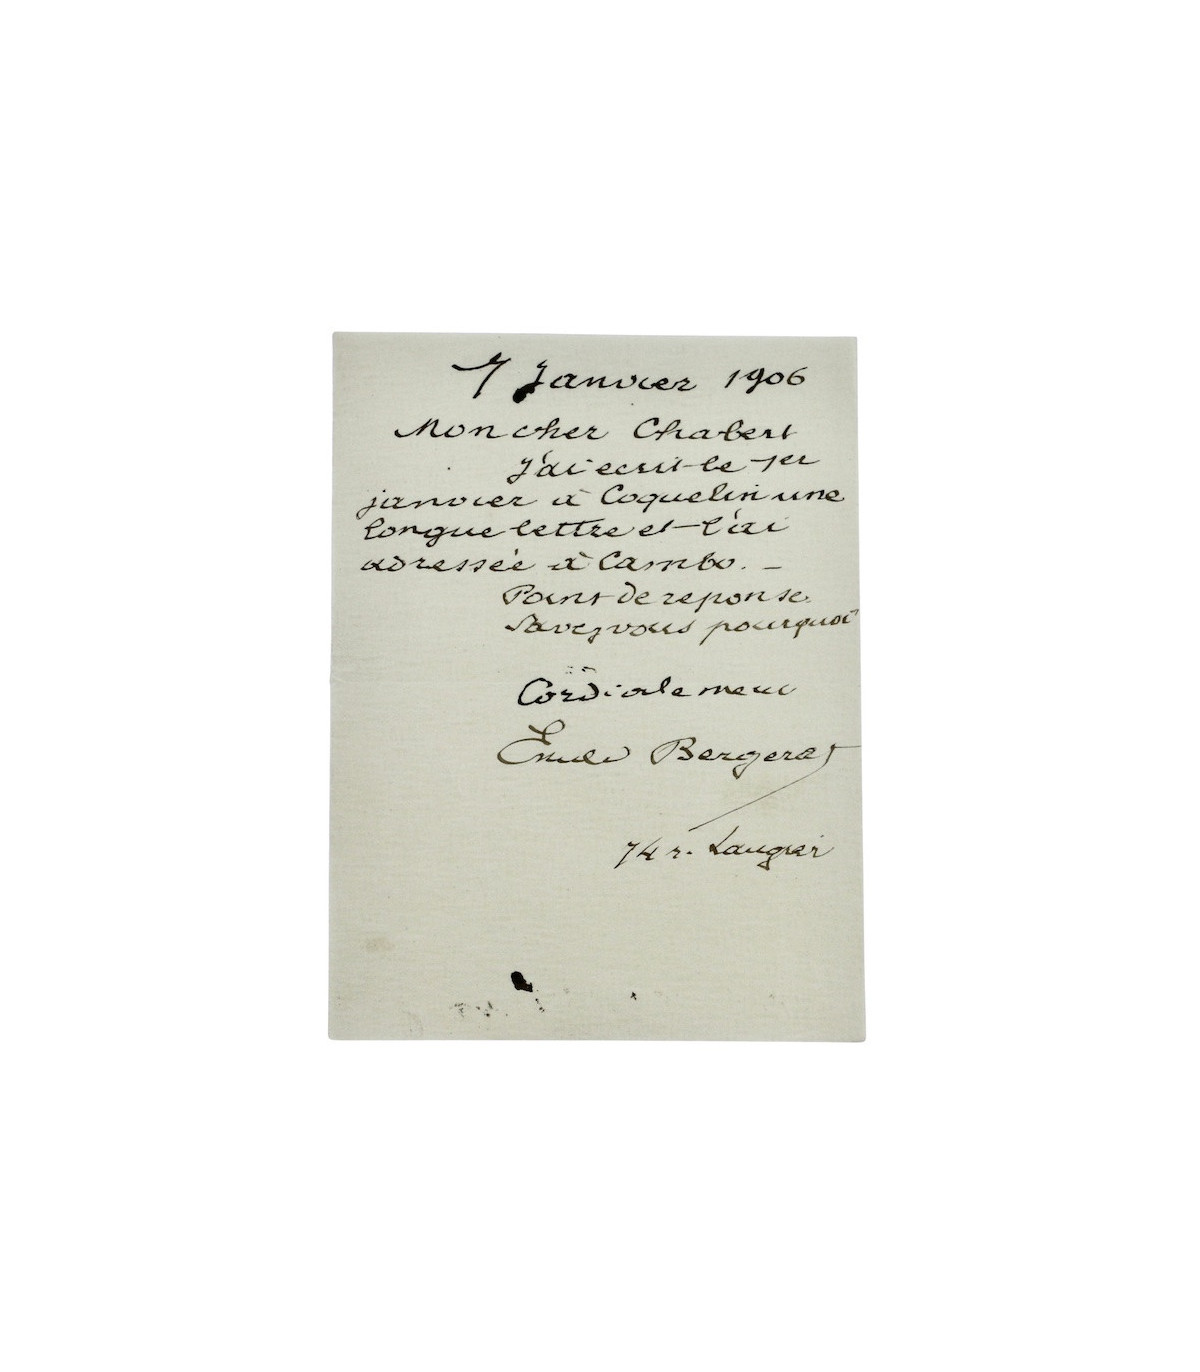 7 Janvier 1906
Mon cher Chabert
J'ai ecrit le 1er
janvier à Coquelin une
longue lettre et l'ai
adressée à Cambo. _
Point de reponse.
Savez vous pourquoi
Cordialement
Emile Bergerat
74 r. Laugier